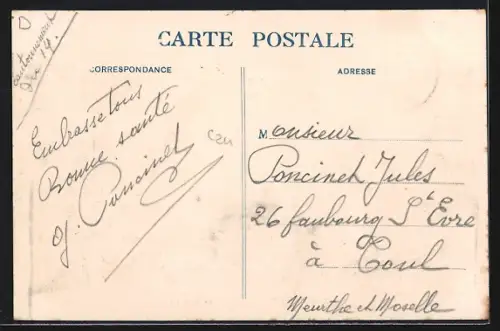 D
cantonnement
Déc 14.
CARTE POSTALE
CORRESPONDANCE
ADRESSE
Embrasse tous
Bonne santé
J. Poncinet
Monsieur
Poncinet Jules
26 faubourg St Evre
à Toul
Meurthe et Moselle